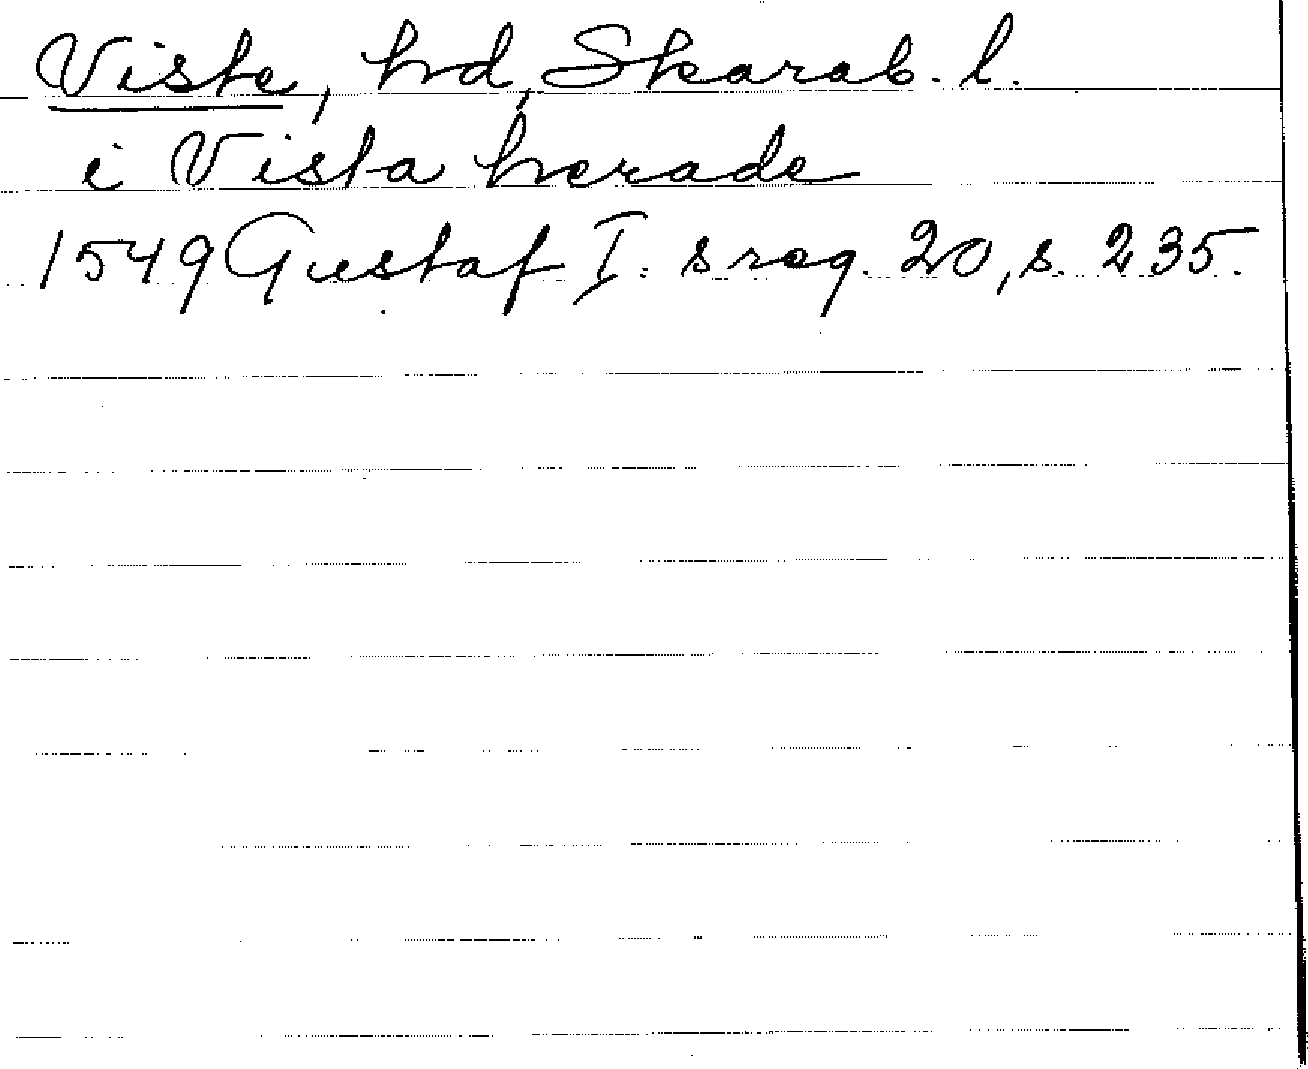 Viste, hd, Skarab. l.
i Vista herade
1549 Gustaf I: s reg. 20, s. 235.